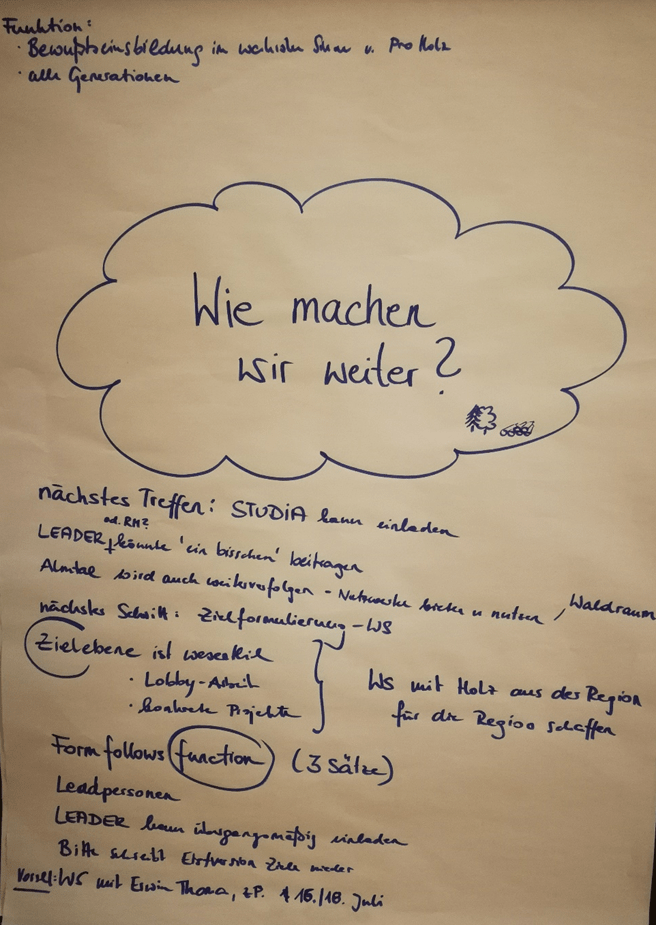 Funktion:
· Bewußtseinsbildung im u. Pro Holz
· alle Generationen
Wie machen
wir weiter?
nächstes Treffen: STUDiA kann einladen
od. RM?
LEADER könnte 'ein bisschen' beitragen
Almtal wird auch weiterverfolgen - Netzwerke bieten u nutzen, Waldraum
nächster Schritt: Zielformulierung-WS
Zielebene ist wesentlich
· Lobby-Arbeit
· konkrete Projekte
WS mit Holz aus der Region
für die Region schaffen
Form follows function (3 Sätze)
Leadpersonen
LEADER kann übergangsmäßig einladen
Bitte schreibt Erstversion Ziele nieder
WS mit Erwin Thoma, 15./16. Juli